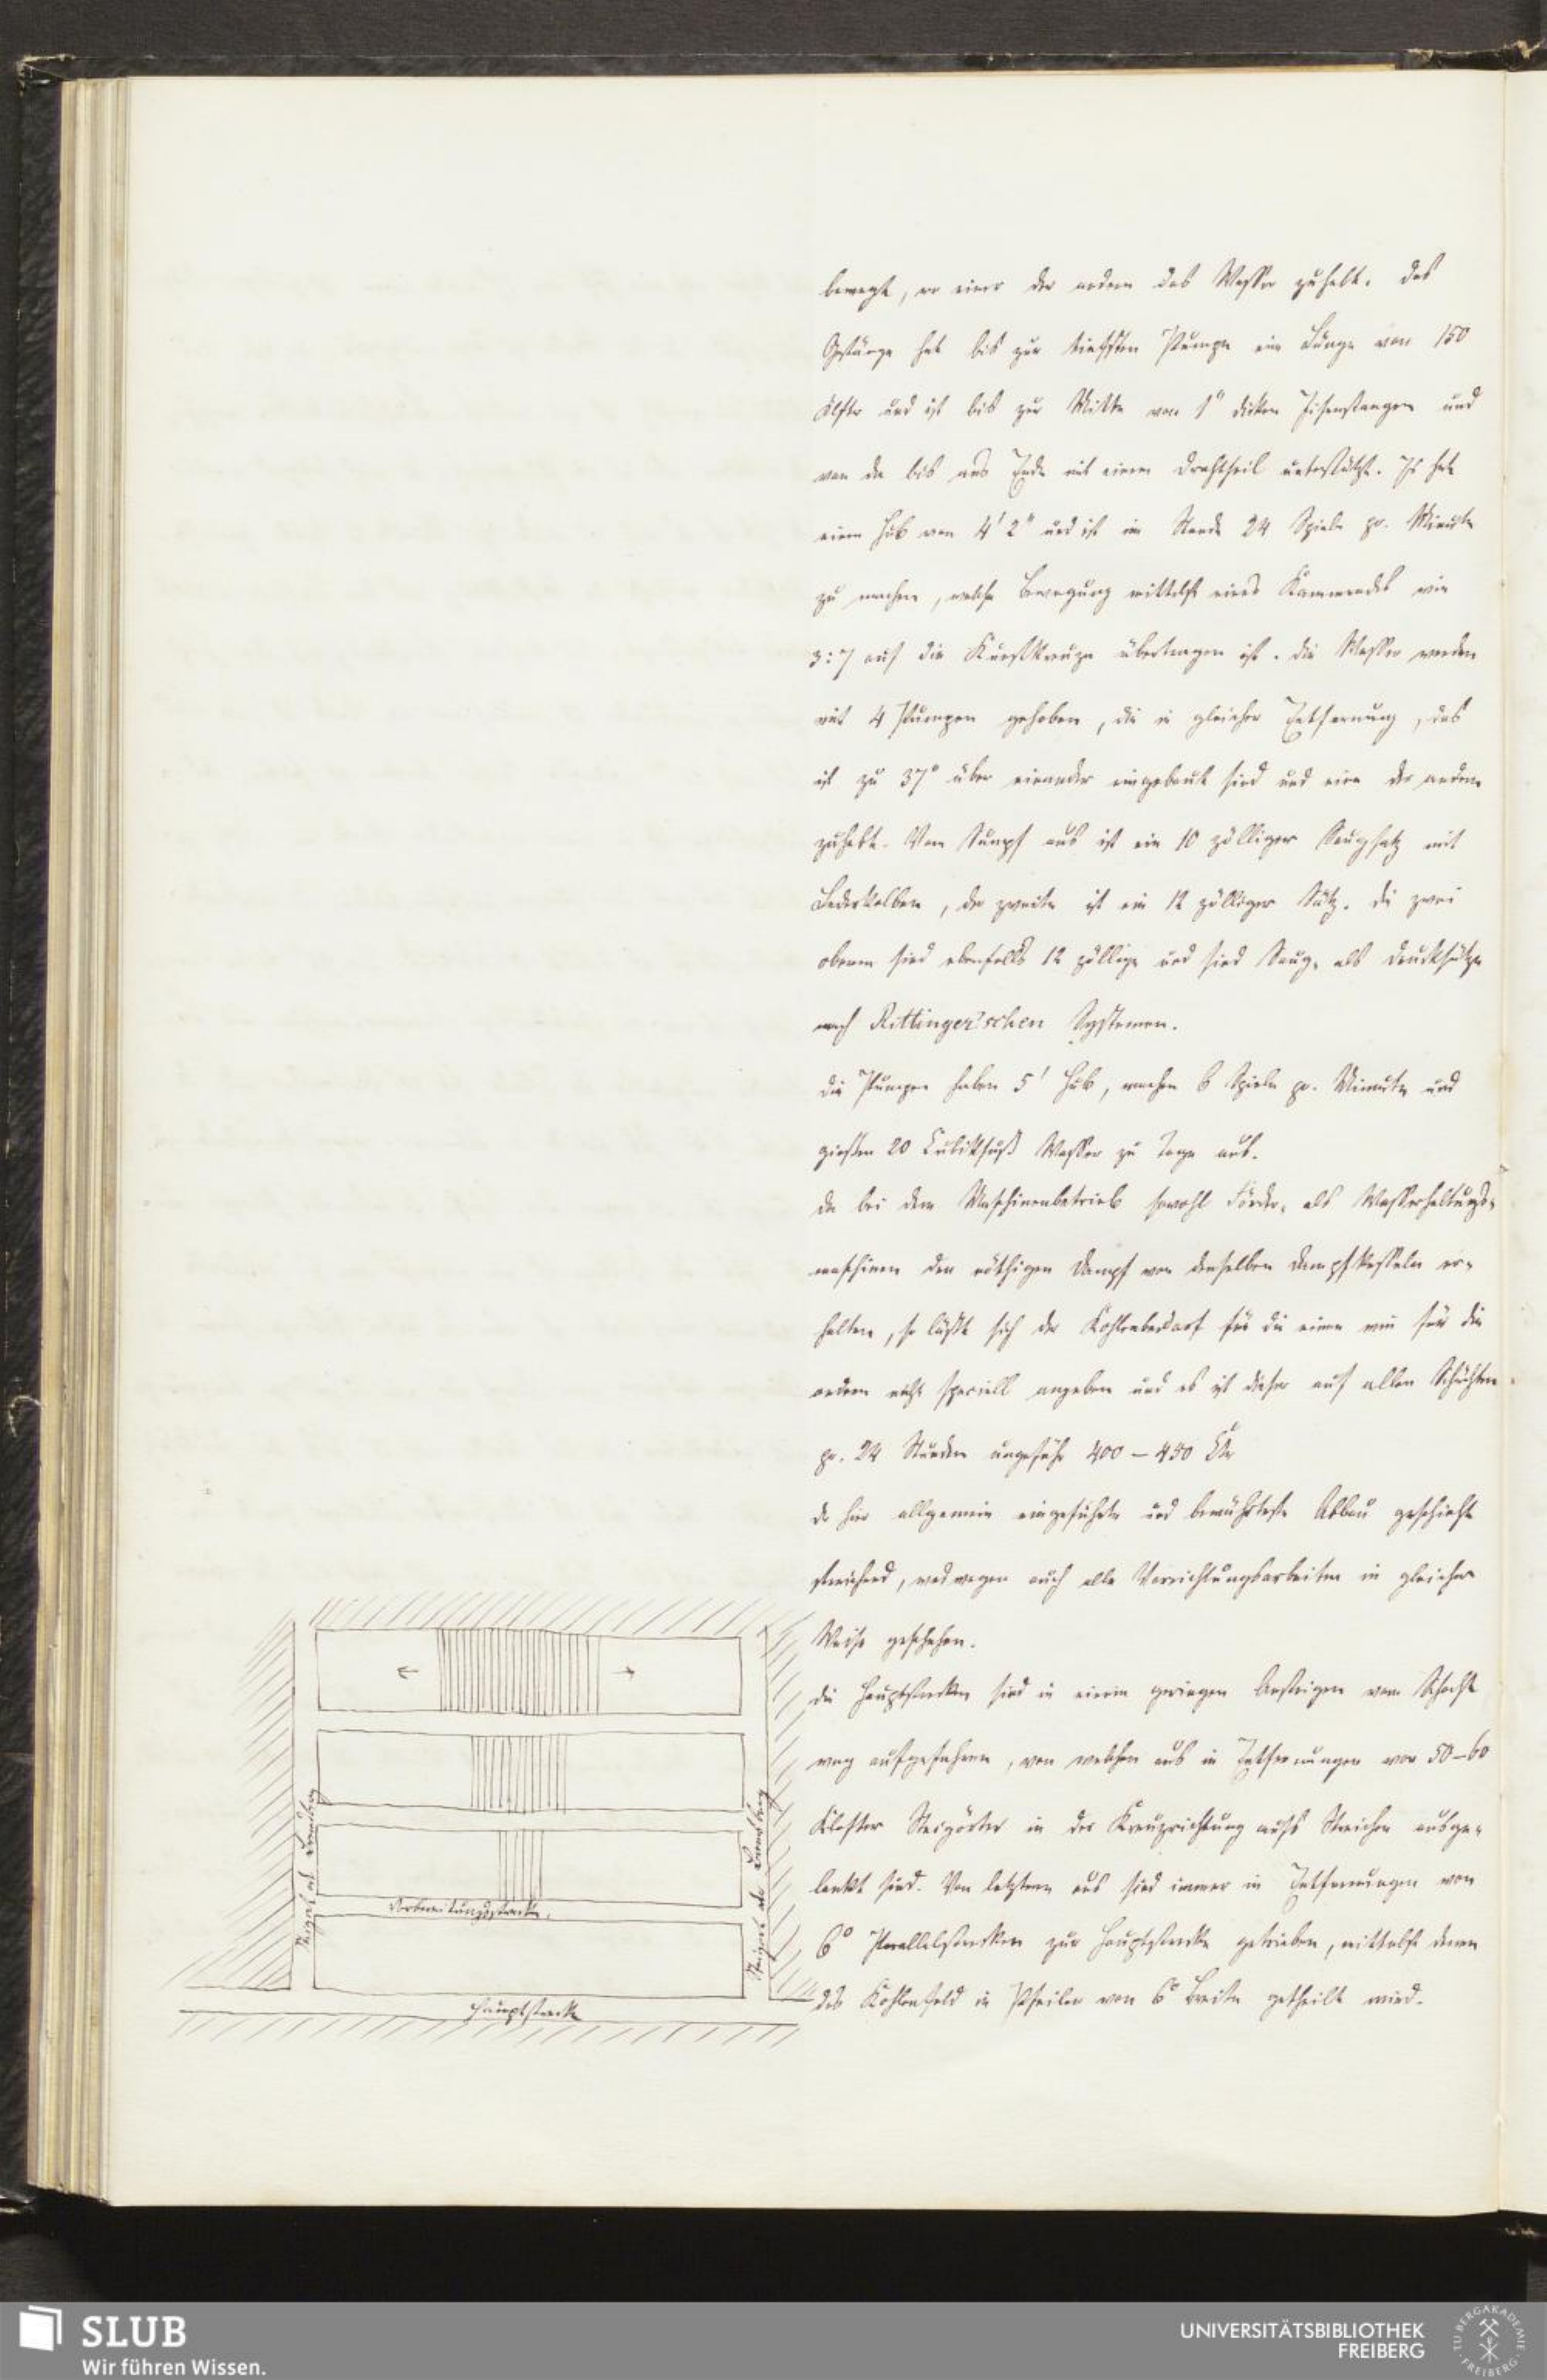 bewegt, wo einer der andern das Wasser zuhebt. Das
Gestänge hat bis zur tiefsten Pumpe eine Länge von 150
Klftr und ist bis zur Mitte von 1" dicken Eisenstangen und
von da bis ans Ende mit einem Drahtseil unterstützt. Es hat
einen Hub von 4' 2" und ist im Stande 24 Spiele pr. Minute
zu machen, welche Bewegung mittelst eines Kammrades wie
3:7 auf die Kunstkreuze übertragen ist. Die Wasser werden
mit 4 Pumpen gehoben, die in gleicher Entfernung, das
ist zu 37° über einander eingebaut sind und eine der andern
zuhebt. Vom Sumpf aus ist ein 10 zölliger Saugsatz mit
Lederkolben, der zweite ist ein 12 zölliger Satz. Die zwei
oberen sind ebenfalls 12 zöllige und sind Saug- als Drucksätze
nach Rittinger'schen Systemen.
Die Pumpen haben 5' Hub, machen 6 Spiele pr. Minute und
gießen 20 Cubikfuß Wasser zu Tage aus.
Da bei dem Maschinenbetrieb sowohl Förder- als Wasserhaltungs-
maschinen den nöthigen Dampf von denselben Dampfkesseln er-
halten, so läßt sich der Kohlenbedarf für die eine wie für die
andern nicht speciell angeben und es ist dieser auf allen Schächten
pr. 24 Stunden ungefähr 400 - 450 Ctr
Der hier allgemein eingeführte und bewährteste Abbau geschieht
streichend, weswegen auch alle Vorrichtungsarbeiten in gleicher
Weise geschehen.
Die Hauptstrecken sind in einem geringen Ansteigen vom Schacht
weg aufgefahren, von welchen aus in Entfernungen von 50-60
Klafter Steigörter in der Kreuzrichtung aufs Streichen ausge-
lenkt sind. Von letztern aus sind immer in Entfernungen von
6° Parallelstrecken zur Hauptstrecke getrieben, mittelst denen
das Kohlenfeld in Pfeiler von 6° Breite getheilt wird.
Steigort als Bremsberg
Steigort als Bremsberg
Vorbereitungsstrecke.
Hauptstrecke
SLUB
Wir führen Wissen.
UNIVERSITÄTSBIBLIOTHEK
FREIBERG
TU BERGAKADEMIE
FREIBERG